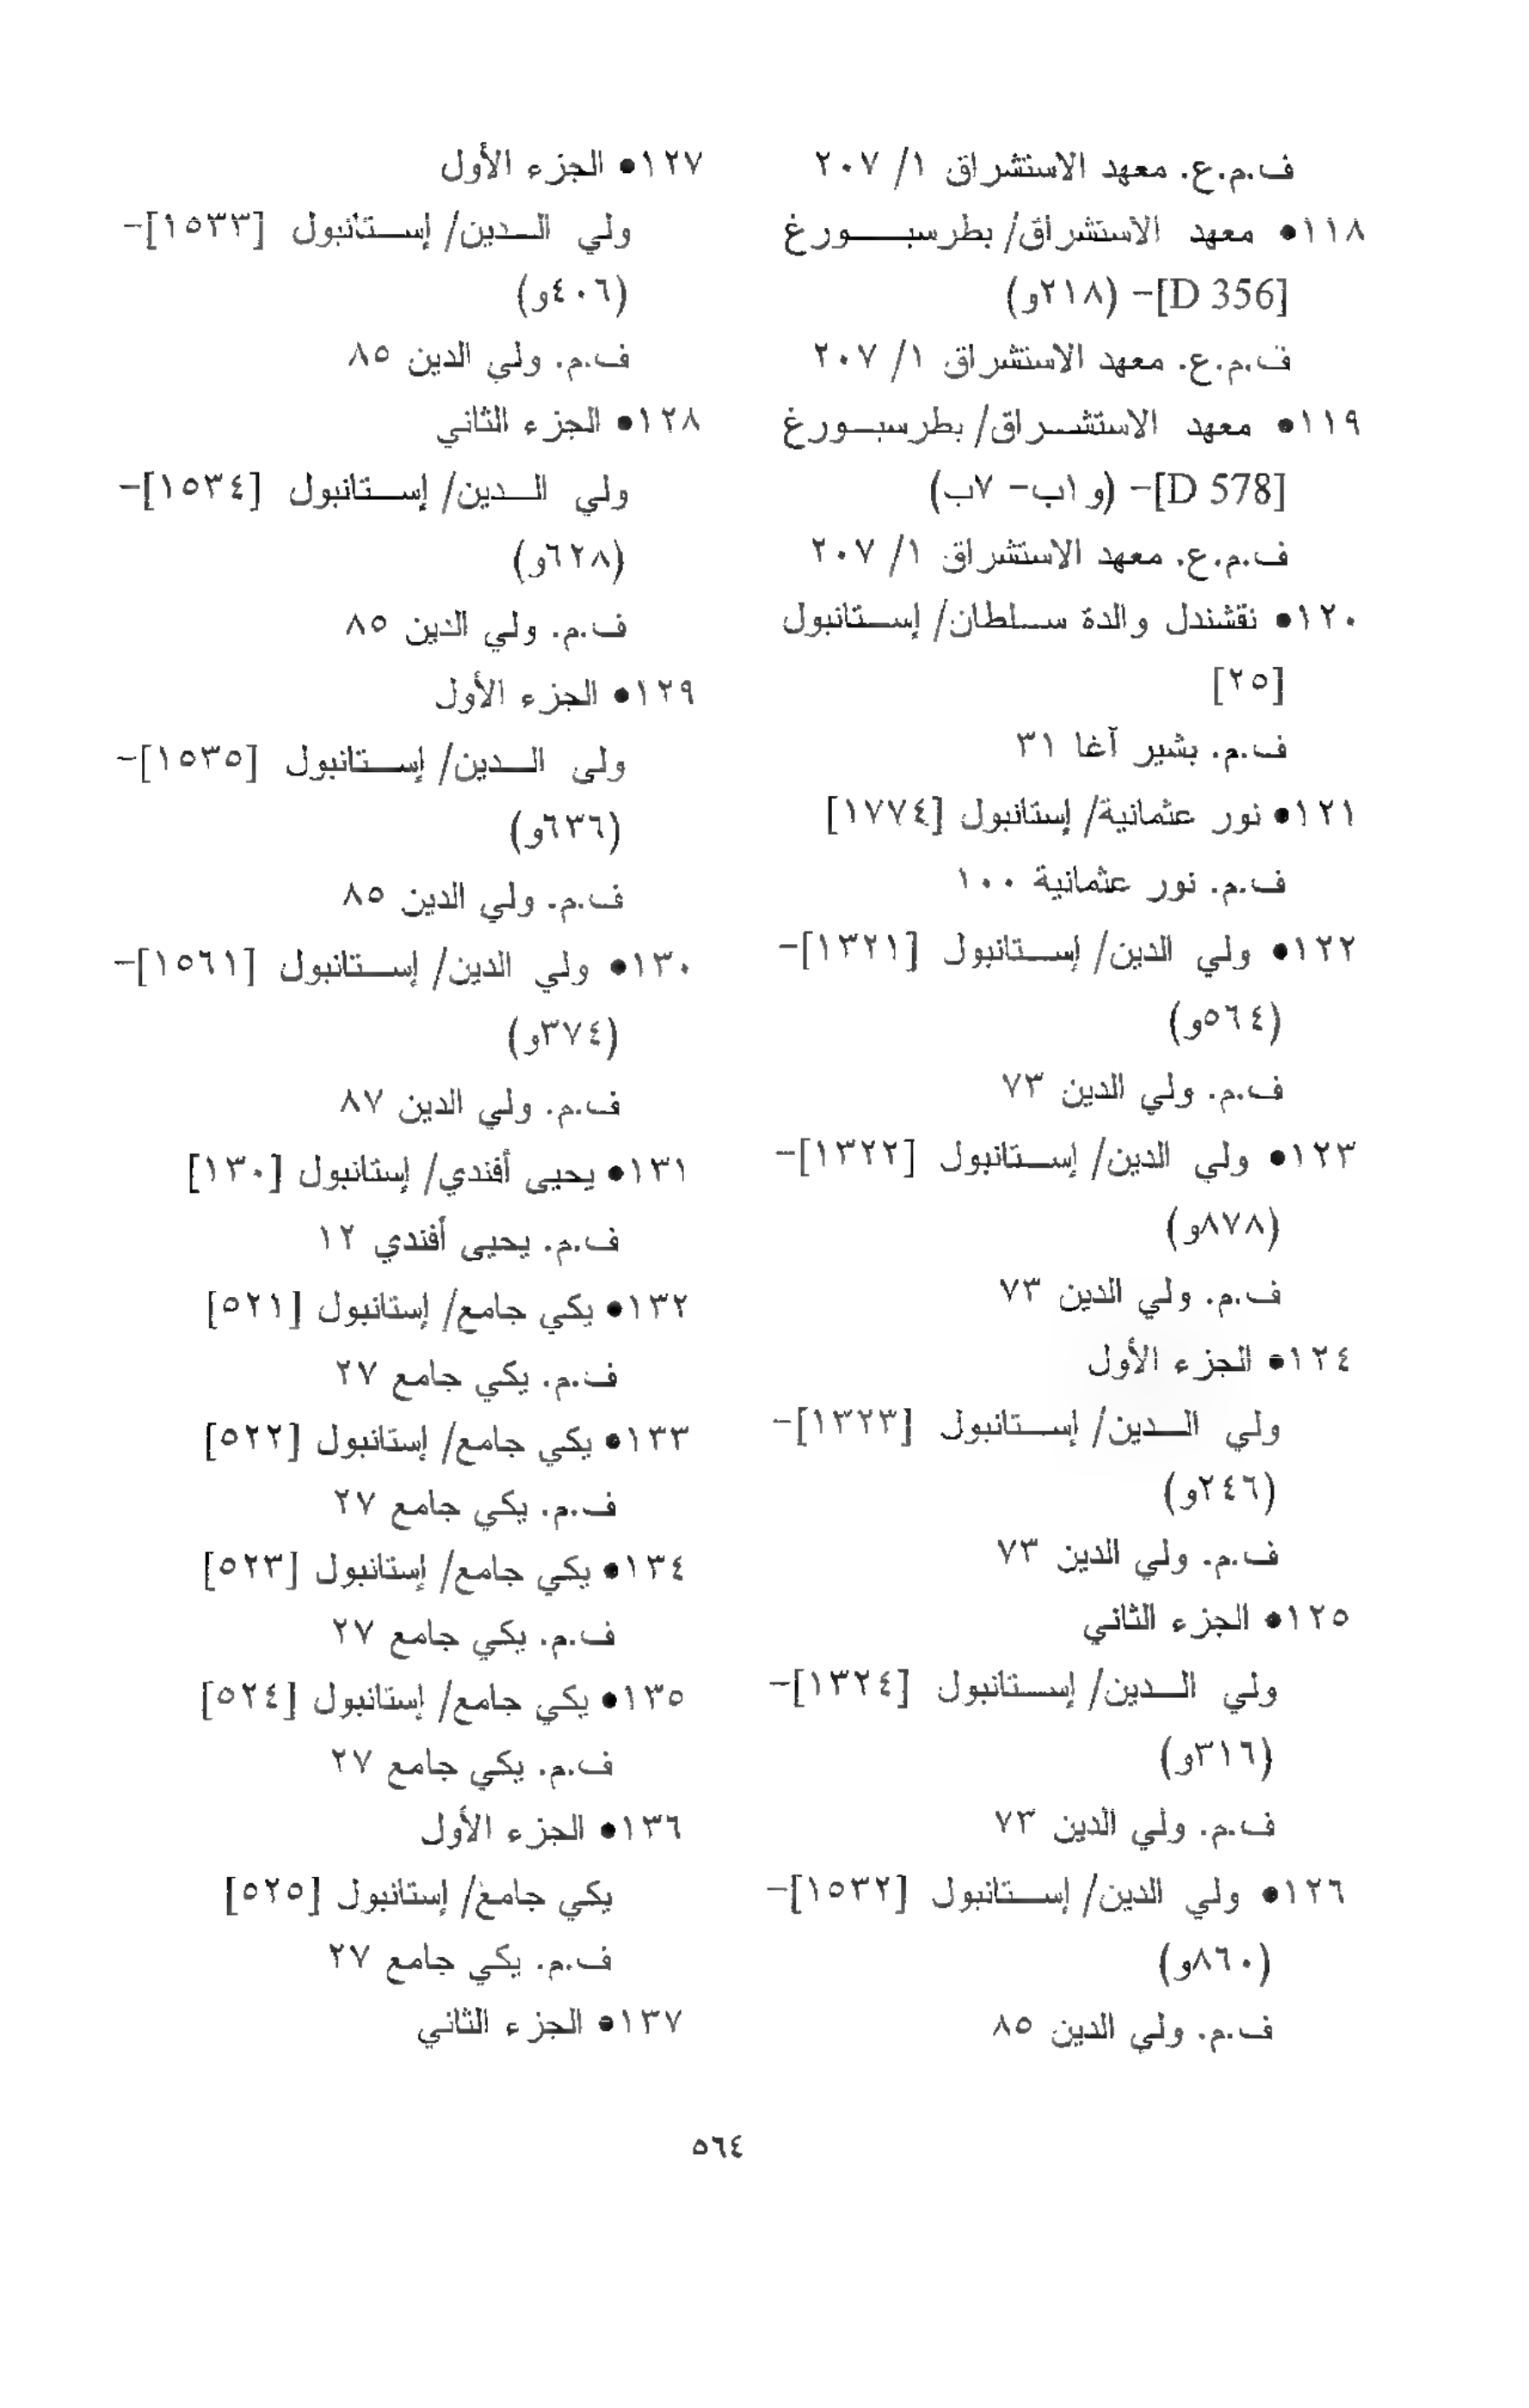 ف.م.ع. معهد الاستشراق ١/ ٢٠٧
١١٨• معهد الاستشراق/ بطرسبورغ
[D 356]- (٢١٨و)
ف.م.ع. معهد الاستشراق ١/ ٢٠٧
١١٩• معهد الاستشراق/ بطرسبورغ
[D 578]- (و ١ب- ٧ب)
ف.م.ع. معهد الاستشراق ١/ ٢٠٧
١٢٠• نقشندل والدة سلطان/ إستانبول
[٢٥]
ف.م. بشير آغا ٣١
١٢١• نور عثمانية/ إستانبول [١٧٧٤]
ف.م. نور عثمانية ١٠٠
١٢٢• ولي الدين/ إستانبول [١٣٢١]-
(٥٦٤و)
ف.م. ولي الدين ٧٣
١٢٣• ولي الدين/ إستانبول [١٣٢٢]-
(٨٧٨و)
ف.م. ولي الدين ٧٣
١٢٤• الجزء الأول
ولي الدين/ إستانبول [١٣٢٣]-
(٢٤٦و)
ف.م. ولي الدين ٧٣
١٢٥• الجزء الثاني
ولي الدين/ إستانبول [١٣٢٤]-
(٣١٦و)
ف.م. ولي الدين ٧٣
١٢٦• ولي الدين/ إستانبول [١٥٣٢]-
(٨٦٠و)
ف.م. ولي الدين ٨٥
١٢٧• الجزء الأول
ولي الدين/ إستانبول [١٥٣٣]-
(٤٠٦و)
ف.م. ولي الدين ٨٥
١٢٨• الجزء الثاني
ولي الدين/ إستانبول [١٥٣٤]-
(٦٢٨و)
ف.م. ولي الدين ٨٥
١٢٩• الجزء الأول
ولى الدين/ إستانبول [١٥٣٥]-
(٦٣٦و)
ف.م. ولي الدين ٨٥
١٣٠• ولي الدين/ إستانبول [١٥٦١]-
(٣٧٤و)
ف.م. ولي الدين ٨٧
١٣١• يحيى أفندي/ إستانبول [١٣٠]
ف.م. يحيى أفندي ١٢
١٣٢• يكي جامع/ إستانبول [٥٢١]
ف.م. يكي جامع ٢٧
١٣٣• يكي جامع/ إستانبول [٥٢٢]
ف.م. يكي جامع ٢٧
١٣٤• يكي جامع/ إستانبول [٥٢٣]
ف.م. يكي جامع ٢٧
١٣٥• يكي جامع/ إستانبول [٥٢٤]
ف.م. يكي جامع ٢٧
١٣٦• الجزء الأول
يكي جامع/ إستانبول [٥٢٥]
ف.م. يكي جامع ٢٧
١٣٧• الجزء الثاني
٥٦٤